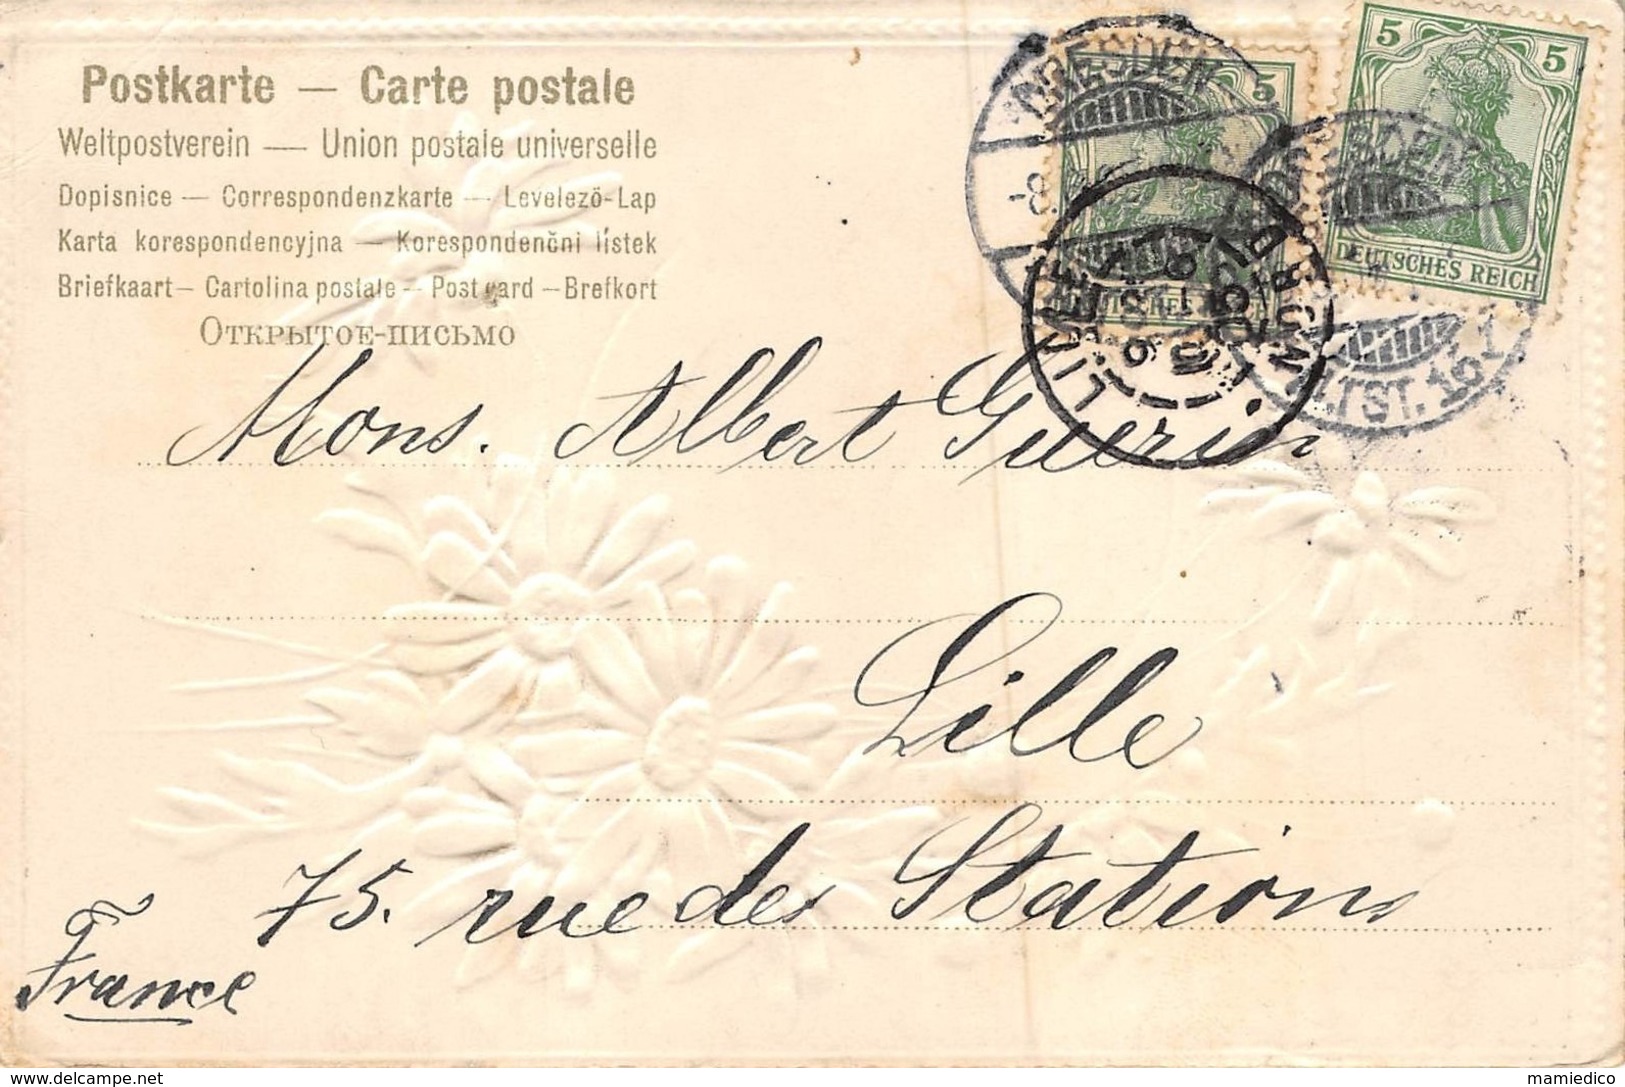 Postkarte — Carte postale
Weltpostverein — Union postale universelle
Dopisnice — Correspondenzkarte — Levelező-Lap
Karta korespondencyjna — Korespondenční lístek
Briefkaart — Cartolina postale — Post card — Brefkort
Открытое-письмо
DRESDEN
5
5 5
DRESDEN
DEUTSCHES REICH
ALTST. 16
LILLE
NORD
Mons. Albert Guerin
Lille
75. rue des Stations
France
mamiedico
www.delcampe.net